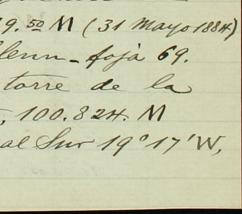 9.50 M (31 Mayo 1884)
lenn - foja 69.
torre de la
, 100.824. M
al Sur 19° 17' W,